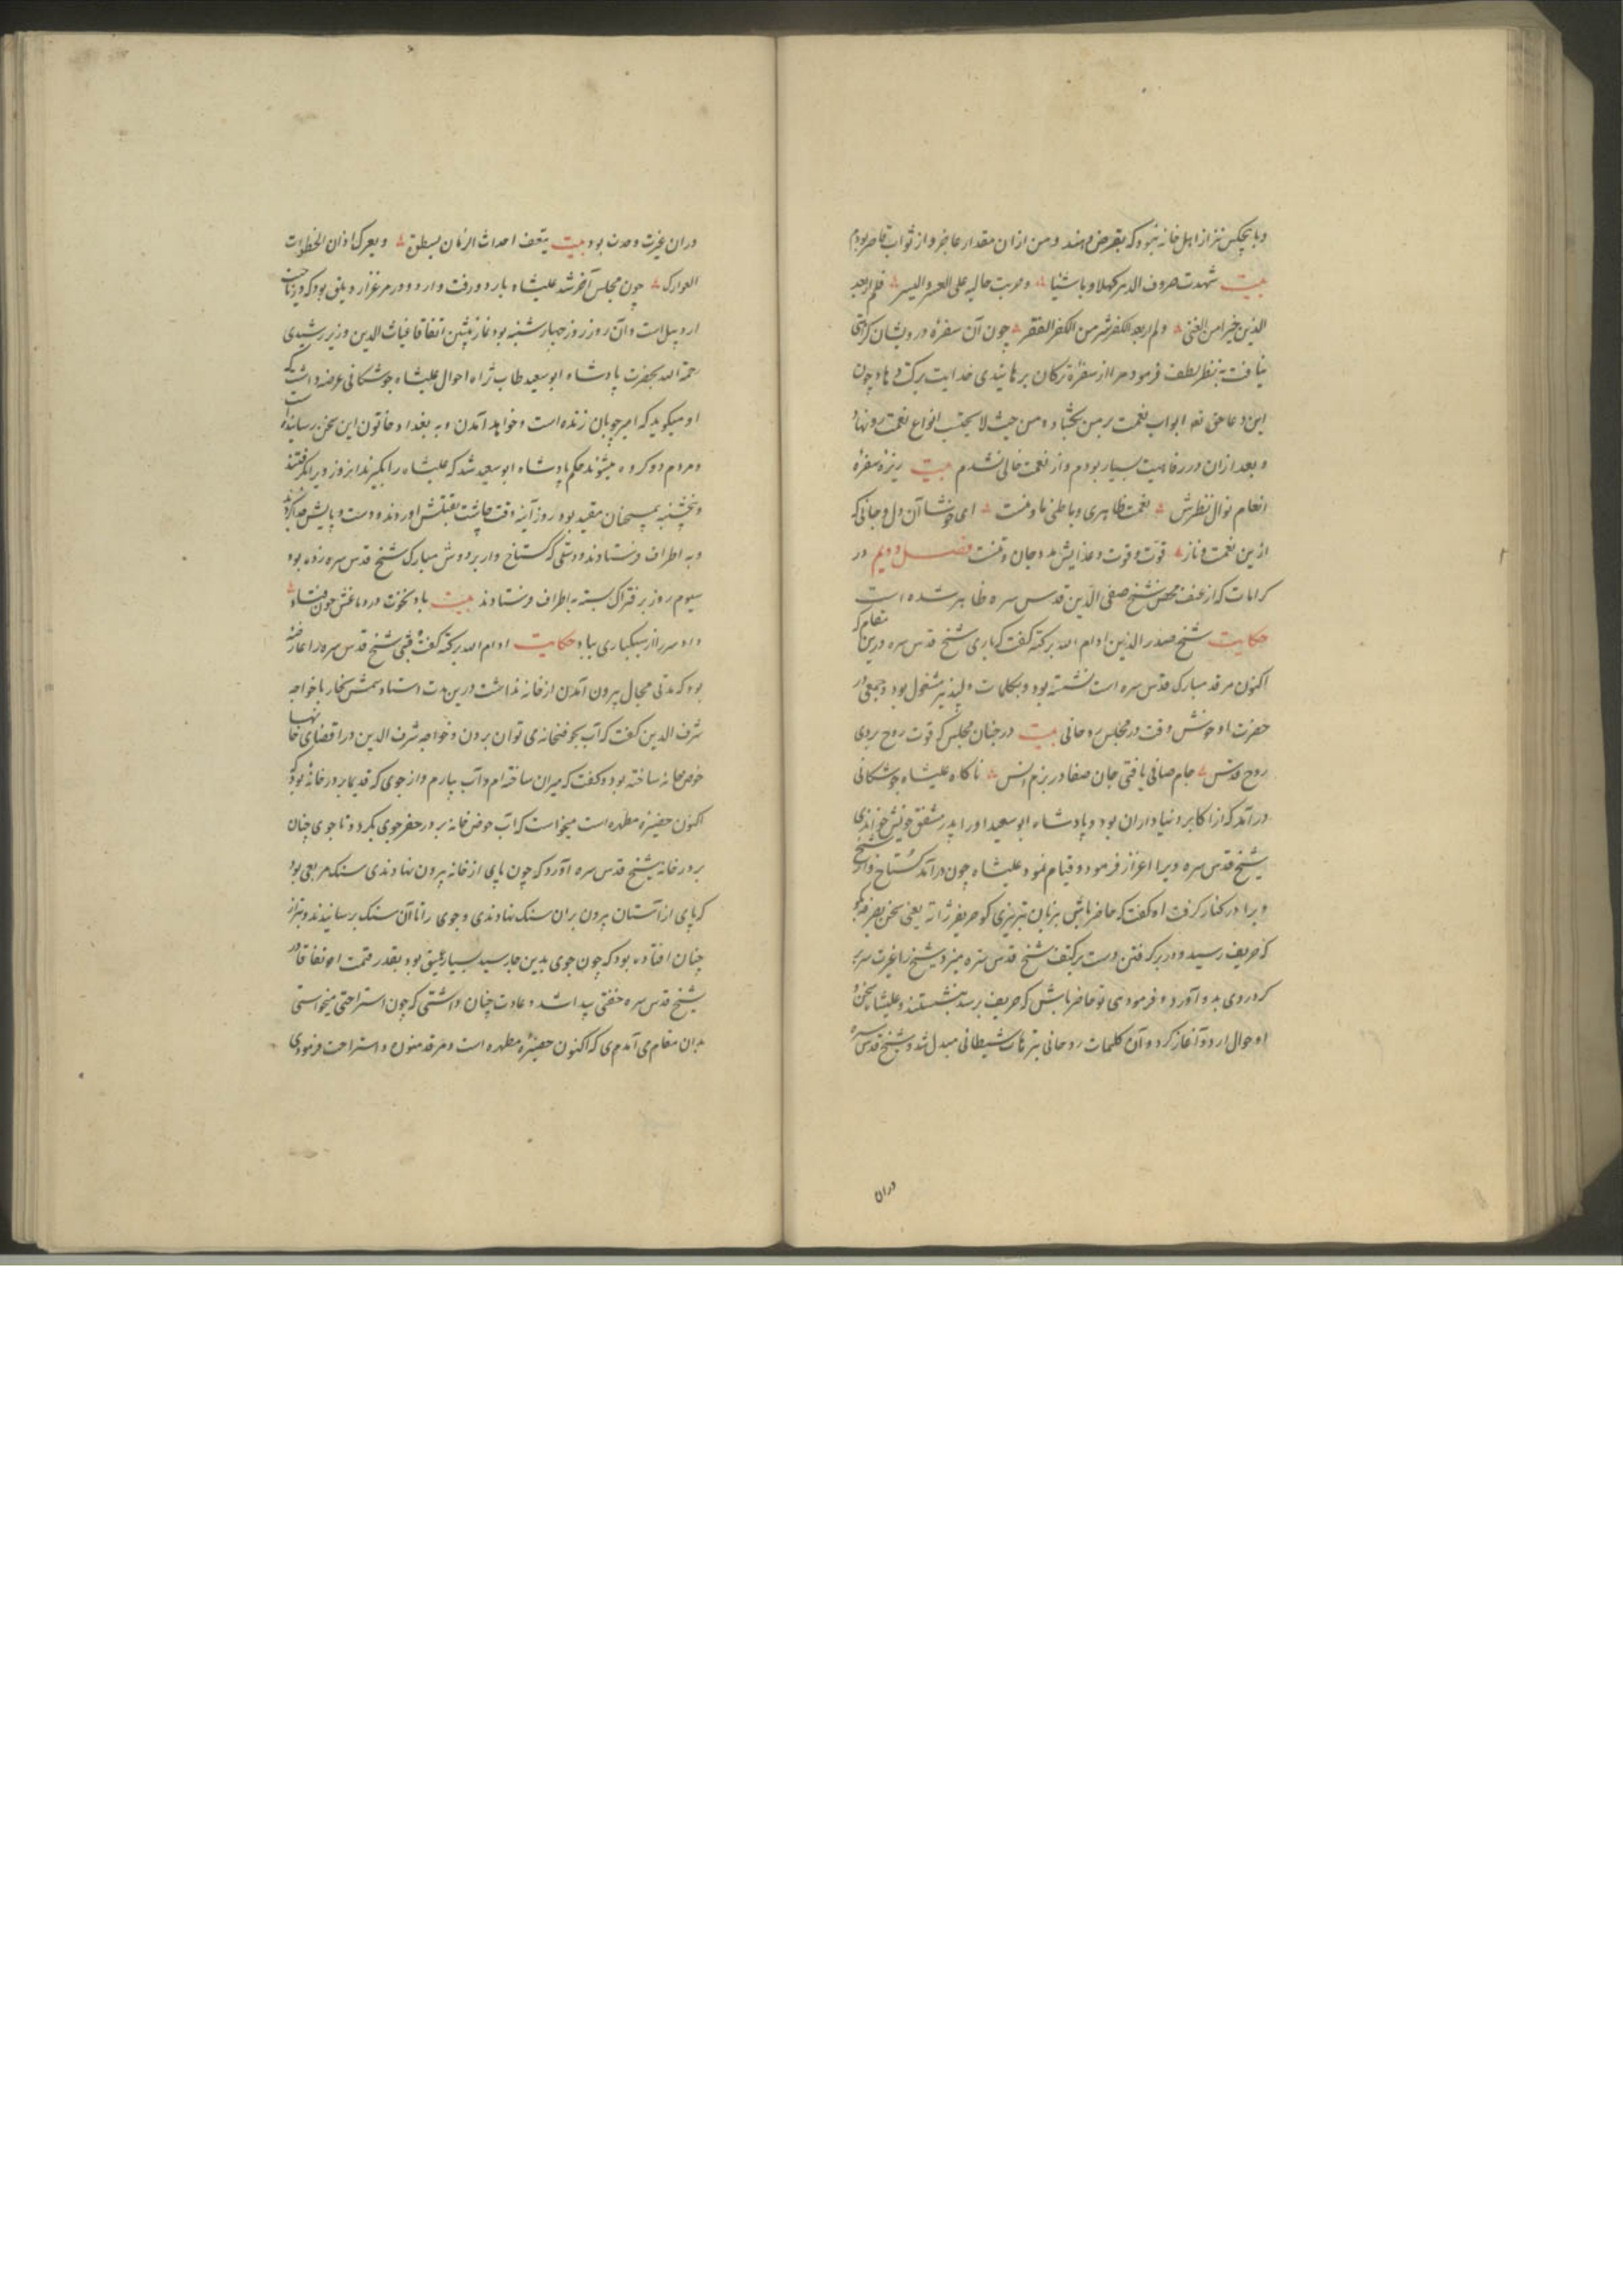 و با هیچکس نیز از اهل خانه نبود که بقرض دهند و من از آن مقدار عاجز و از ثواب قاصر بودم
بیت شهدت صروف الدهر کهلا و ناشئا و جربت حالیه علی العسر و الیسر فلم ار بعد
الدین خیرا من الغنی و لم ار بعد الکفر شر من الکفر الفقر چون آن سفره درویشان کردی
نیافت به نظر لطف فرمود مرا از سفره ترکان برهانیدی خدایت برکت دهاد چون
این دعا حق تعالی ابواب نعمت بر من بگشاد و من حیث لا یحتسب انواع نعمت رو نهاد
و بعد از آن در رفاهیت بسیار بودم و از نعمت خالی نشدم بیت ریزه سفره
انعام نوال نظرش نعمت ظاهری و باطنی ما و منست ای خوشا آن دل و جانی که
ازین نعمت و ناز قوت و قوت و غذایش بدو جان و تنست فصل دویم در
کرامات که از عنف محض شیخ صفی الدین قدس سره ظاهر شده است
حکایت شیخ صدر الدین ادام الله برکته گفت که باری شیخ قدس سره درین مقام که
اکنون مرقد مبارک قدس سره است نشسته بود و بکلمات دلپذیر مشغول بود و جمعی در
حضرت او خوش وقت در مجلس روحانی بیت در چنان مجلس که قوت روح بردی
روح قدس جام صافی یافتی جان صفا در بزم انس ناکاه علیشاه جوشکانی
درآمد که از اکابر دنیا داران بود و پادشاه ابو سعید او را پدر مشفق خویش خواندی
شیخ قدس سره ویرا اعزاز فرمود و قیام نمود علیشاه چون درآمد گستاخ وار شیخ
ویرا در کنار گرفت او گفت که حاضر باش بزبان تبریزی گو حریفر ژاته یعنی سخن بصرف بگو
که حریف رسید و در بر گرفتن دست بر کتف شیخ قدس سره میزد شیخ را غیرت سر بر
کرد روی بدو آورد و فرمود ی تو حاضر باش که حریف رسید بنشستند و علیشاه سخن و
احوال اردو آغاز کرد و آن کلمات روحانی بترهات شیطانی مبدل شد و شیخ قدس سره
دران
دران غیرت و حدت بود بیت یقف احداث الزمان بسطوة و یعرک اذان الخطوات
العوارک چون مجلس آخر شد علیشاه باردو رفت و اردو در مرغزار دبلق بود که در ناحیت
اردبیل است و آن روز روز چهارشنبه بود نماز پیشین اتفاقا غیاث الدین وزیر رشیدی
رحمة الله بحضرت پادشاه ابو سعید طاب ثراه احوال علیشاه جوشکانی عرضه داشت که
او میگوید که امیر چوپان زنده است و خواهد آمدن و به بغداد خاتون این سخن رسانیده است
و مردم دو گروه میشوند حکم پادشاه ابو سعید شد که علیشاه را بگیرند آنروز ویرا بگرفتند
و پنجشنبه همچنان مقید بود روز آدینه وقت چاشت بقتلش آوردند و دست و پایش جدا کردند
و به اطراف فرستادند و دستی که گستاخ وار بر دوش مبارک شیخ قدس سره زده بود
سیوم روز بر فتراک بسته به اطراف فرستادند بیت باد نخوت در دماغش چون فتاد
داد سر را از سبکباری بباد حکایت ادام الله برکته گفت وقتی شیخ قدس سره را عارضه
بود که مدتی مجال بیرون آمدن از خانه نداشت درین مدت استاد شمش نجار با خواجه
شرف الدین گفت که آب بحوضخانه می توان بردن و خواجه شرف الدین در اقضای خانها
حوضخانه ساخته بود و گفت که میزان ساخته ام و آب بیارم و از جوی که قدیما بر در خانه بود که
اکنون حضیره مطهره است میخواست که آب حوض خانه برد حفر جوی بکرد و تا جوی چنان
بر در خانه شیخ قدس سره آورد که چون پای از خانه بیرون نهادندی سنک مربعی بود
که پای از آستان بیرون بران سنک نهادندی و جوی را تا آن سنک برسانیدند و تراز
چنان افتاده بود که چون جوی بدین جا رسید بسیار عمیق بود بقدر قمت اتفاقا در
شیخ قدس سره خفتی پیدا شد و عادت چنان داشتی که چون استراحتی میخواستی
بدان مقام می آمدی که اکنون حضیره مطهره است و مرقد منور و استراحت فرمودی